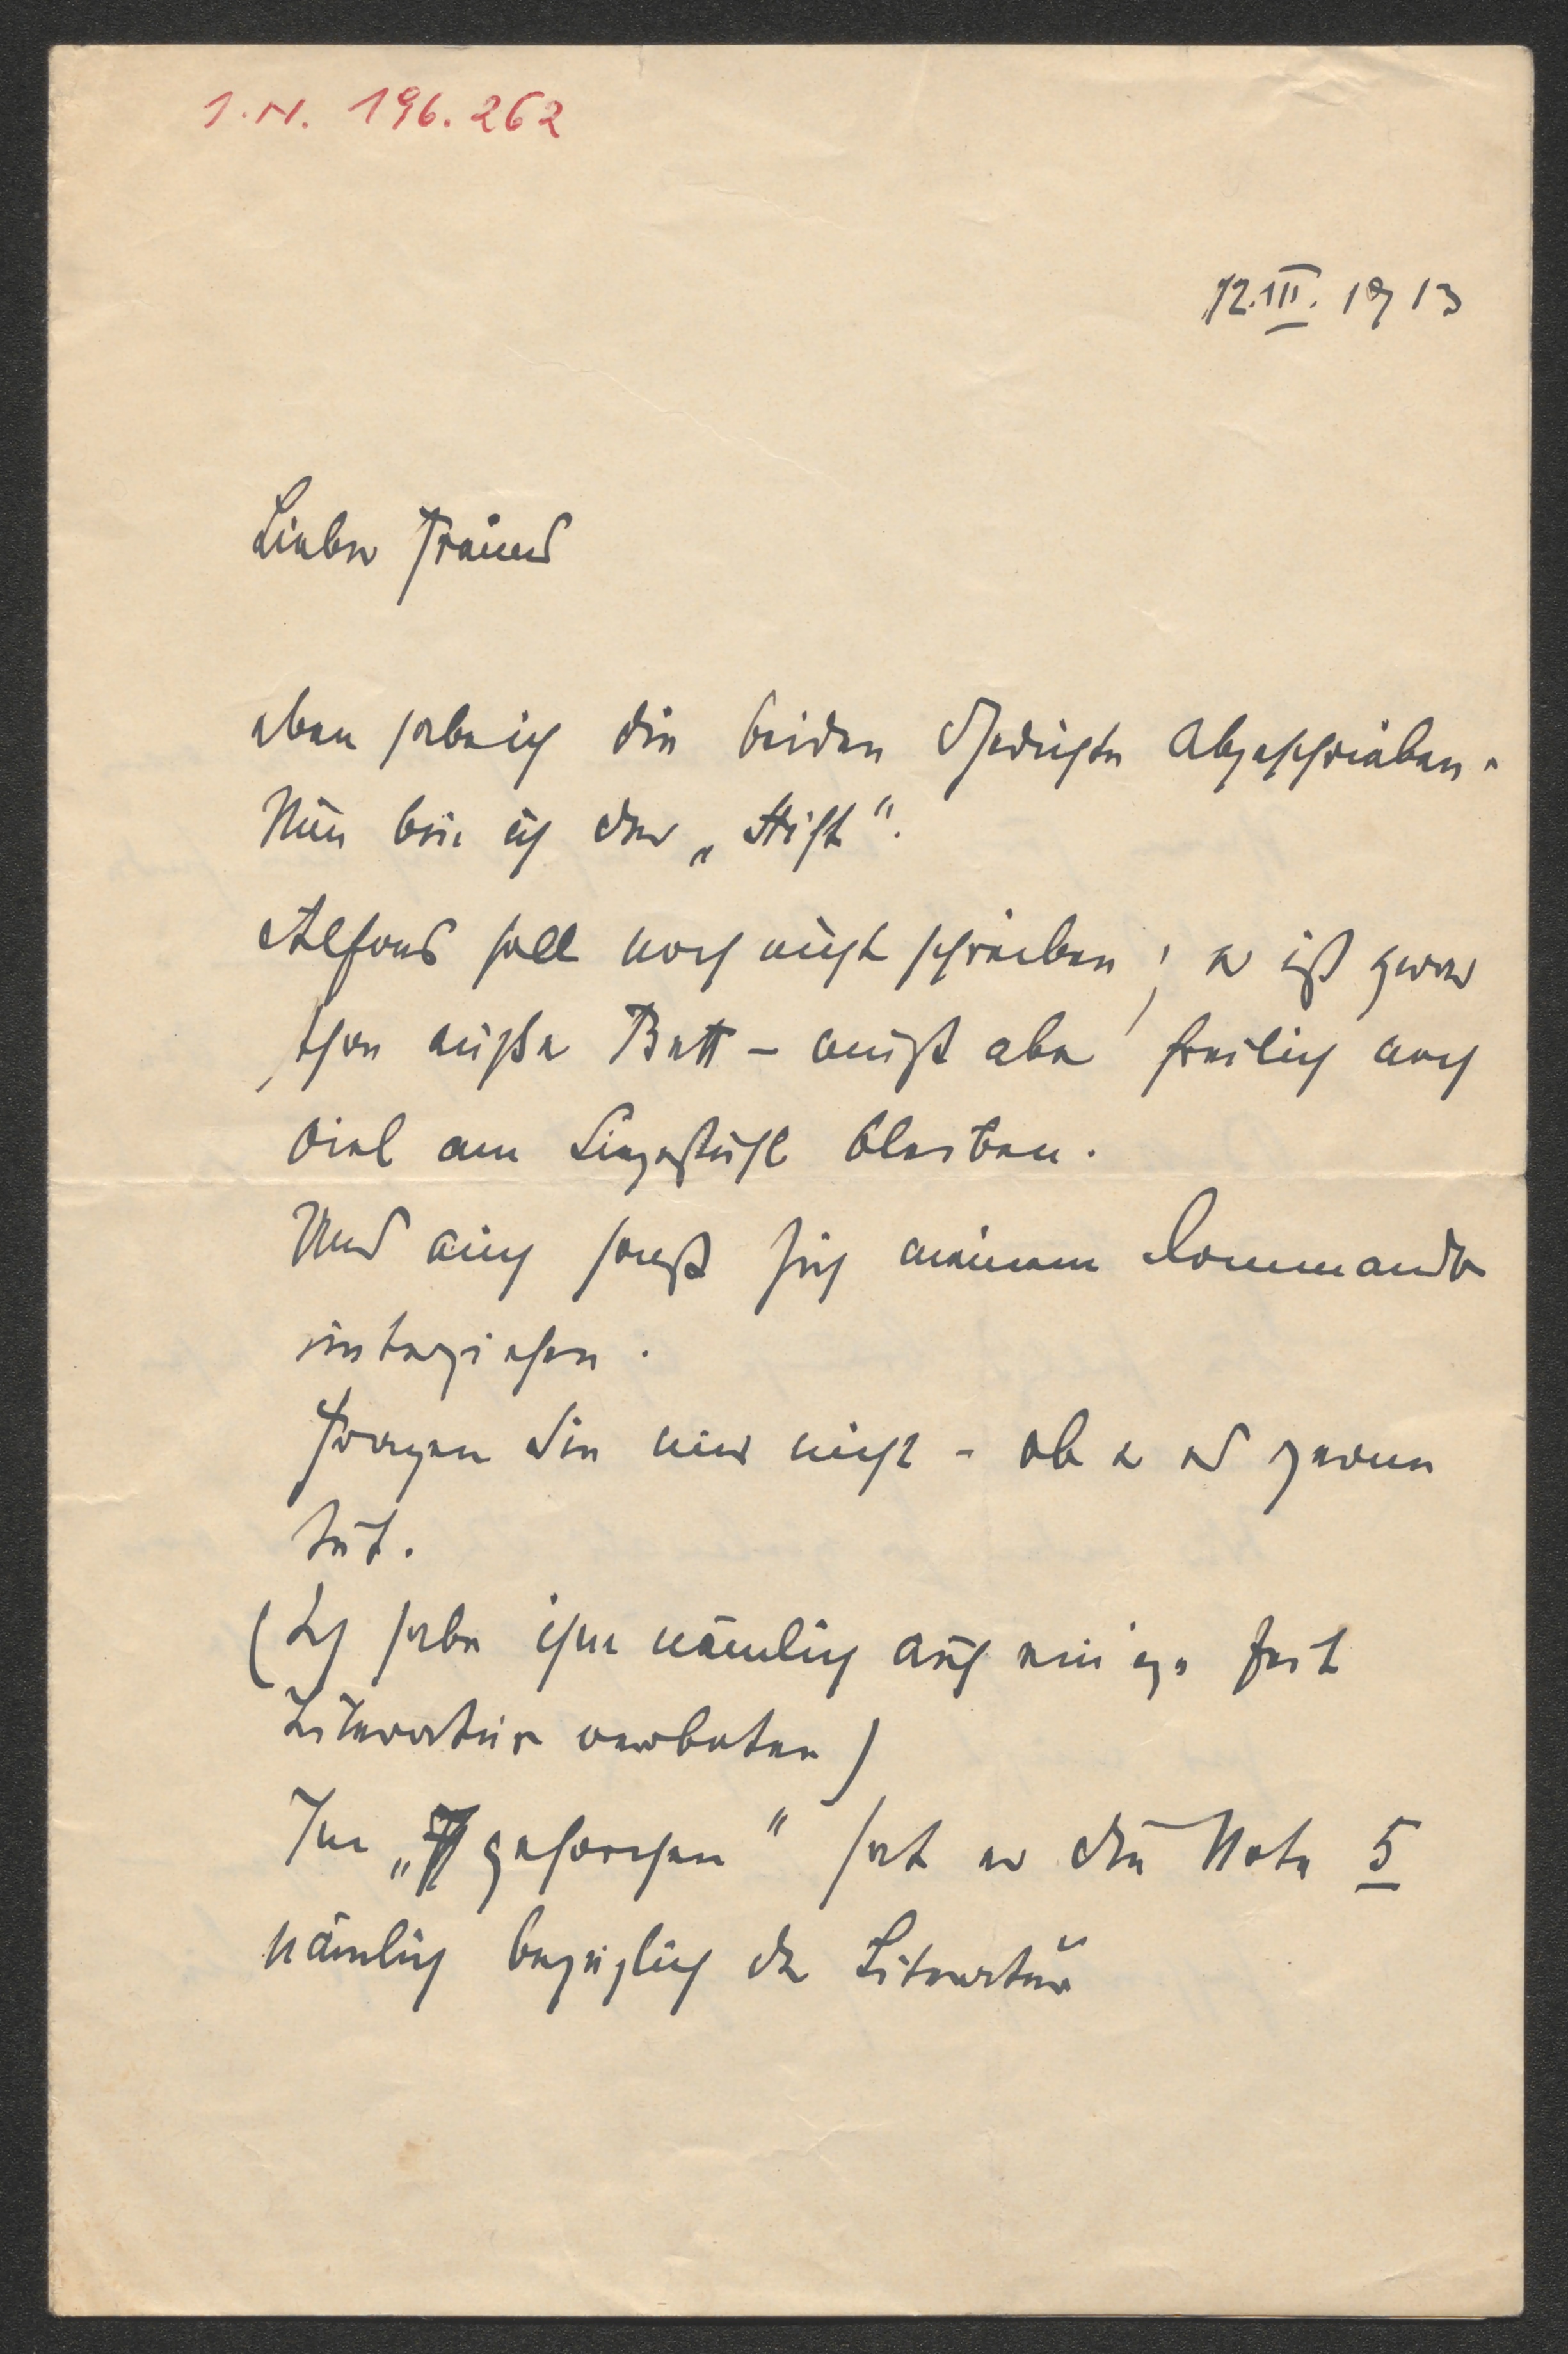 I.N. 196.262
12.III. 1913
Lieber Freund
eben habe ich die beiden Gedichte abgeschrieben.
Nun bin ich der „Stift“.
Alfons soll noch nicht schreiben; er ist zwar
schon außer Bett – muß aber freilich noch
viel am Liegestuhl bleiben.
Und auch sonst sich meinem Commando
unterziehen.
Fragen Sie mir nicht – ob er es gerne
tut.
(Ich habe ihm nämlich auf einige Zeit
Literatur verboten)
Im „gehorchen“ hat er die Note 5
nämlich bezüglich der Literatur